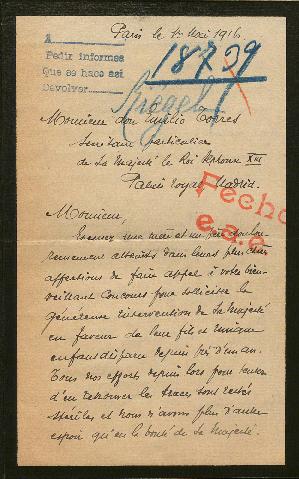 Paris le 1er Mai 1916.
A
Pedir informes
Que se hace así
Devolver
18729
Monsieur don Emilio Torres
Secrétaire particulier
de Sa Majesté le Roi Alphonse XIII
Palais Royal Madrid.
Fecho
Monsieur,
Excusez une mère et un père doulou-
reusement atteints dans leurs plus chères
affections de faire appel à votre bien-
veillant concours pour solliciter la
généreuse intervention de Sa Majesté
en faveur de leur fils et unique
enfant disparu depuis près d'un an.
Tous nos efforts depuis lors pour tenter
d'en retrouver les traces sont restés
stériles et nous n'avons plus d'autre
espoir qu'en la bonté de Sa Majesté.